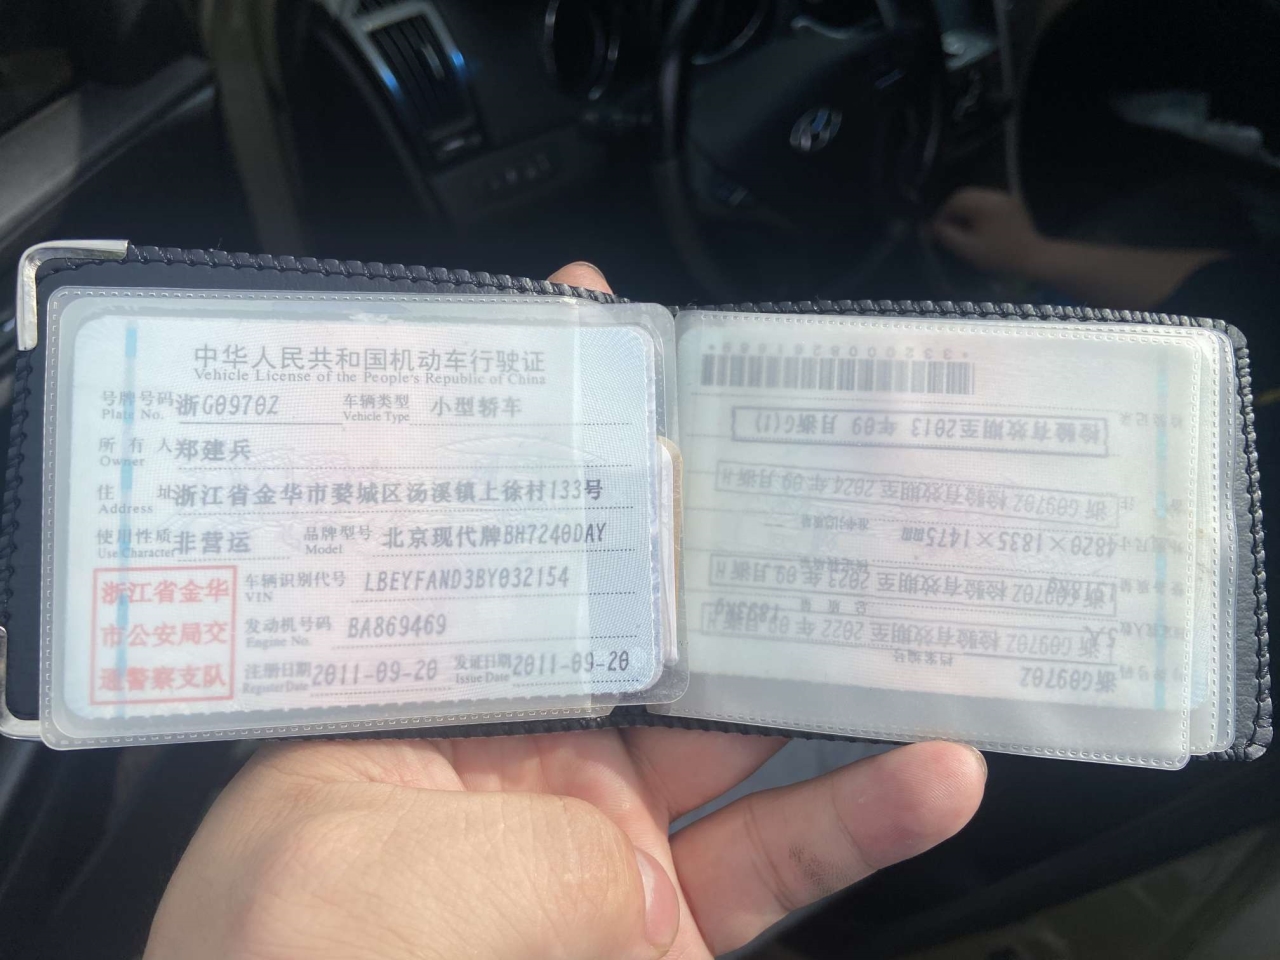 中华人民共和国机动车行驶证
Vehicle License of the People's Republic of China
号牌号码 浙G0970Z 车辆类型 小型轿车
Plate No. Vehicle Type
所有人 郑建兵
Owner
住址 浙江省金华市婺城区汤溪镇上徐村133号
Address
使用性质 非营运 品牌型号 北京现代牌BH7240DAY
Use Character Model
浙江省金华
市公安局交
通警察支队
车辆识别代号 LBEYFAND3BY032154
VIN
发动机号码 BA869469
Engine No.
注册日期 2011-09-20 发证日期 2011-09-20
Register Date Issue Date
浙G0970Z
档案编号
浙G0970Z 检验有效期至2022年09月浙H
5人
总质量 1893kg
浙G0970Z 检验有效期至2023年09月浙H
1518kg
4820×1835×1475mm
浙G0970Z 检验有效期至2024年09月浙H
检验有效期至2013年09月浙G(1)
检验记录